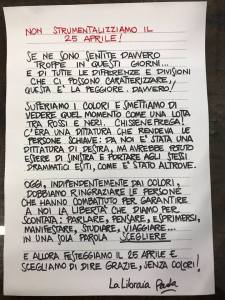 NON STRUMENTALIZZIAMO IL
25 APRILE!
SE NE SONO SENTITE DAVVERO
TROPPE IN QUESTI GIORNI...
E DI TUTTE LE DIFFERENZE E DIVISIONI
CHE CI POSSONO CARATTERIZZARE,
QUESTA E' LA PEGGIORE. DAVVERO!
SUPERIAMO I COLORI E SMETTIAMO DI
VEDERE QUEL MOMENTO COME UNA LOTTA
TRA ROSSI E NERI. CHISSENEFREGA!
C'ERA UNA DITTATURA CHE RENDEVA LE
PERSONE SCHIAVE: DA NOI E' STATA UNA
DITTATURA DI DESTRA, MA AVREBBE POTUTO
ESSERE DI SINISTRA E PORTARE AGLI STESSI
DRAMMATICI ESITI, COME E' STATO ALTROVE.
OGGI, INDIPENDENTEMENTE DAI COLORI,
DOBBIAMO RINGRAZIARE LE PERSONE
CHE HANNO COMBATTUTO PER GARANTIRE
A NOI LA LIBERTA' CHE DIAMO PER
SCONTATA: PARLARE, PENSARE, ESPRIMERSI,
MANIFESTARE, STUDIARE, VIAGGIARE...
IN UNA SOLA PAROLA SCEGLIERE
E ALLORA FESTEGGIAMO IL 25 APRILE E
SCEGLIAMO DI DIRE GRAZIE, SENZA COLORI!
La Libraia Paola